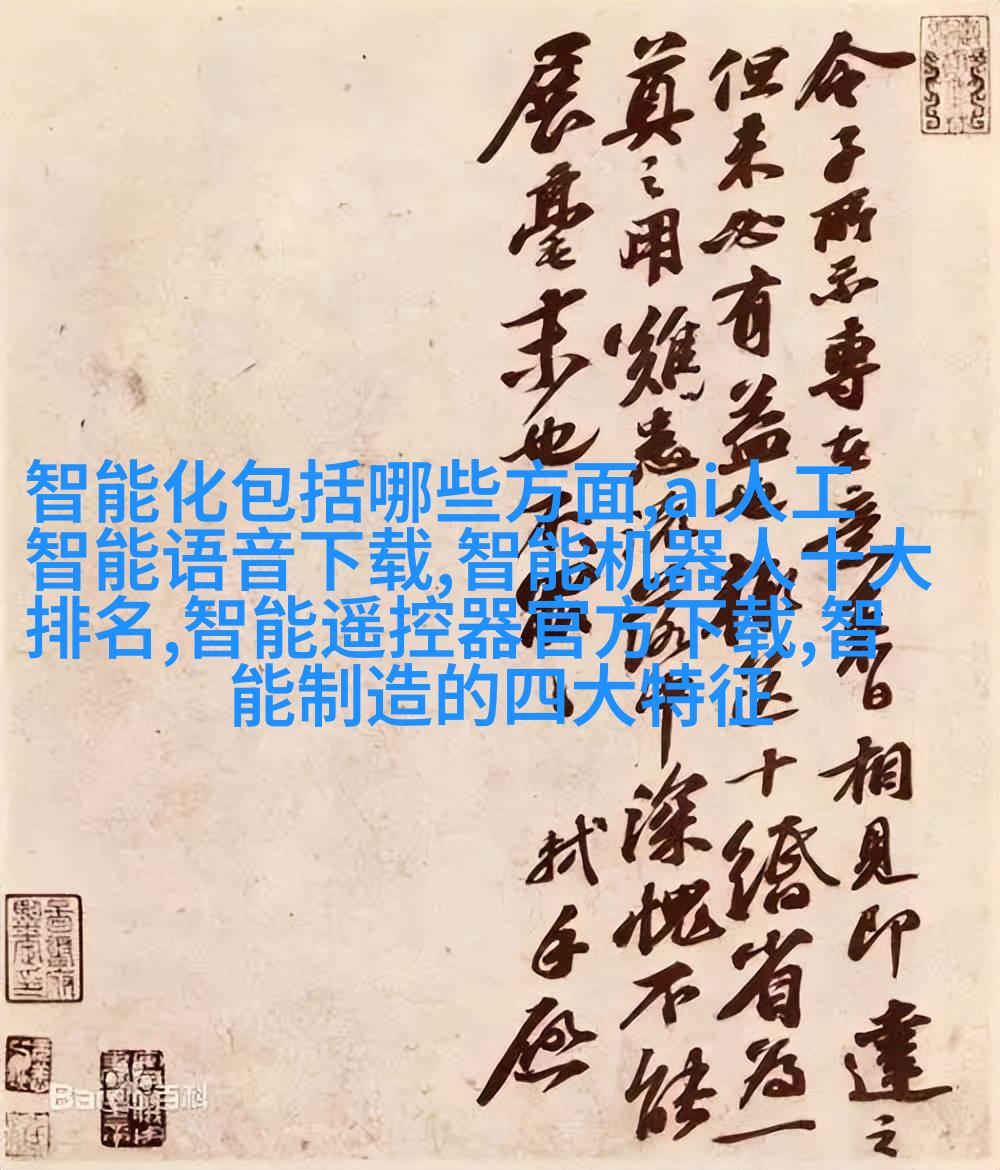 智能化包括哪些方面,ai人工
智能语音下载,智能机器人十大
排名,智能遥控器官方下载,智
能制造的四大特征
令子所示專在意日相見即達之
但未必有益也輒送十緡省為一
奠之用雖悉深愧不能
展毫末也
軾手啟
Baidu百科